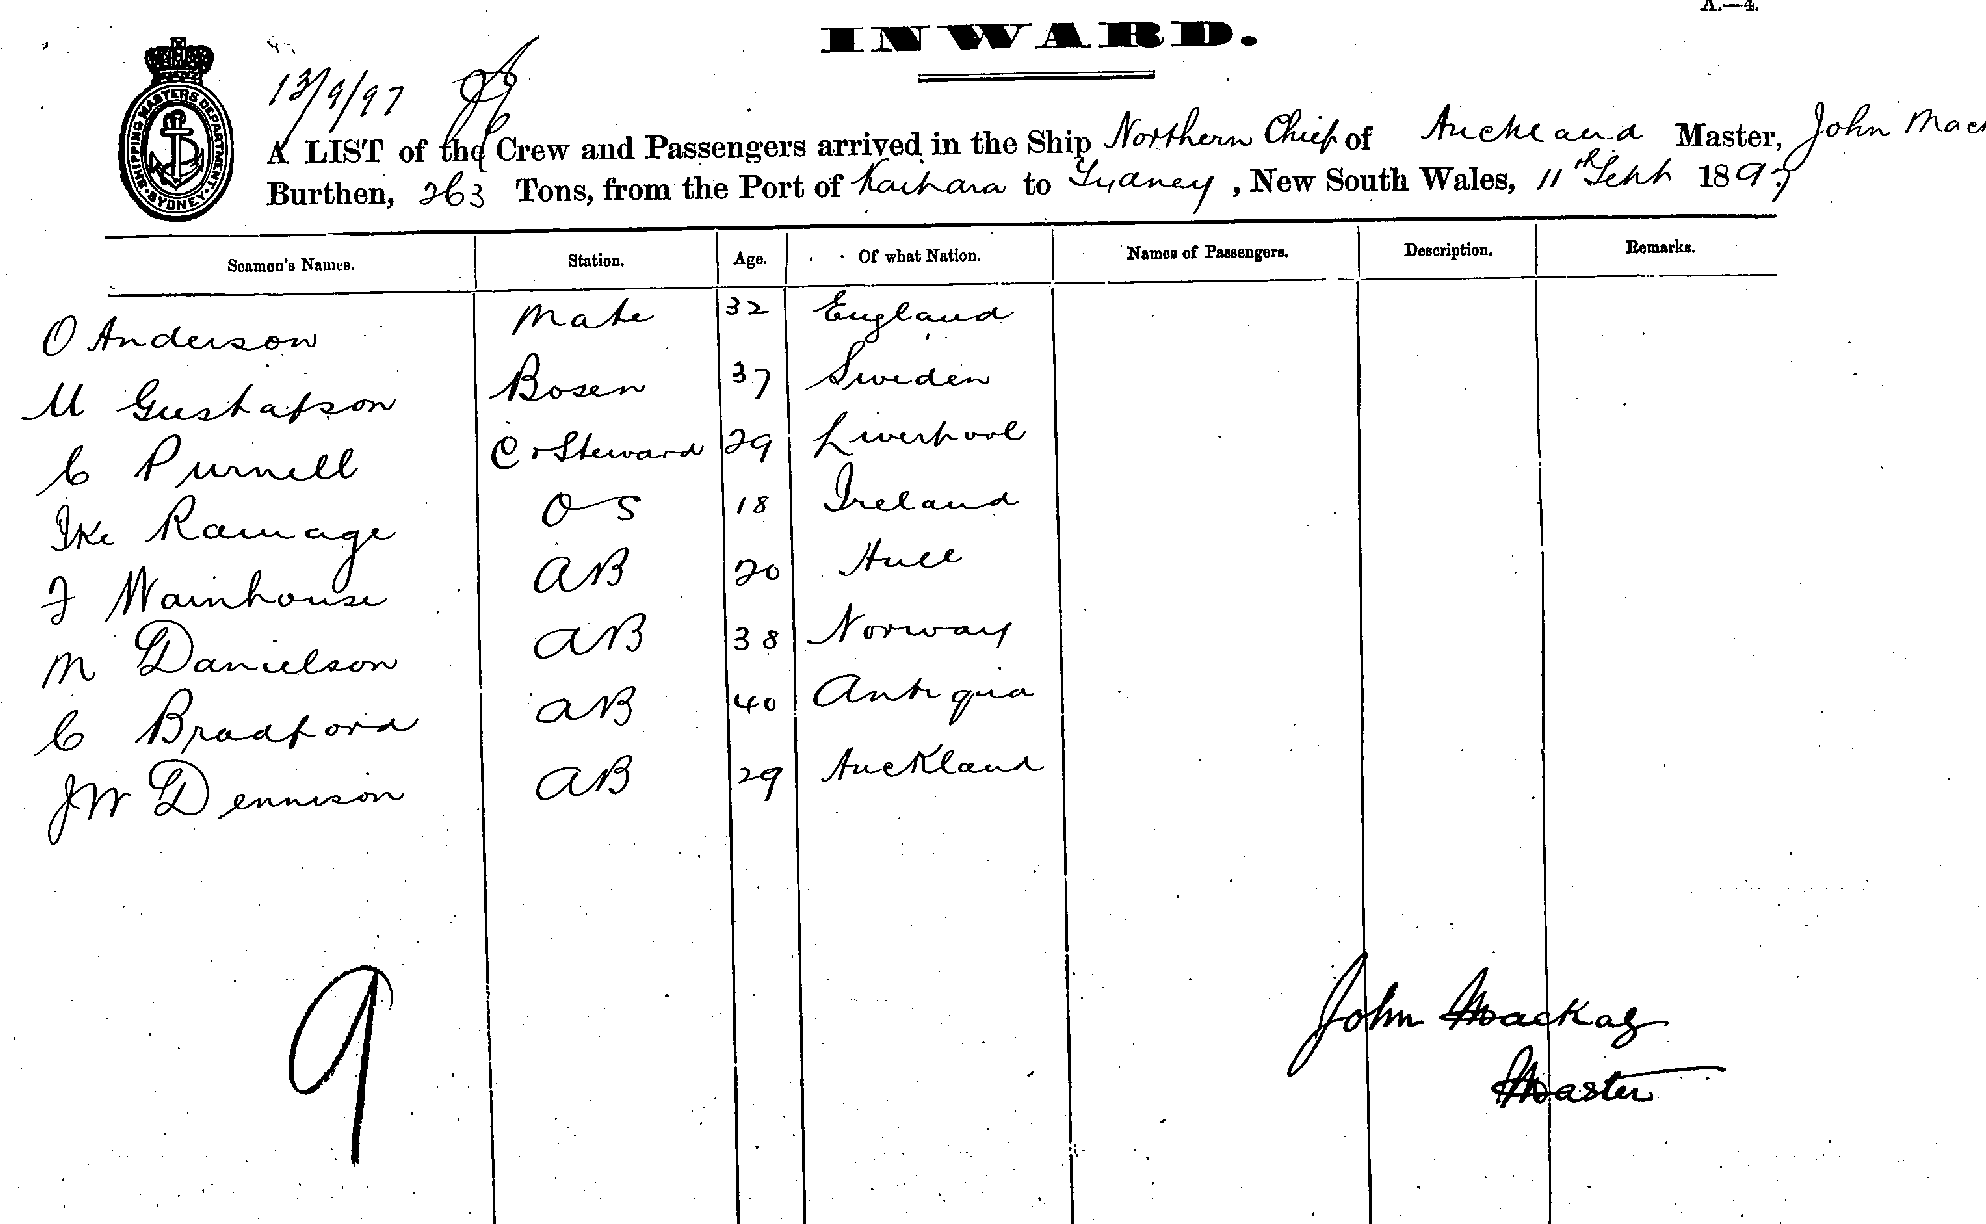 A.—4.
INWARD.
SHIPPING MASTERS DEPARTMENT. SYDNEY.
13/9/97
A LIST of the Crew and Passengers arrived in the Ship Northern Chief of Auckland Master, John Mack
Burthen, 263 Tons, from the Port of Kaipara to Sydney, New South Wales, 11th Sept 1897
Seamen's Names. Station. Age. Of what Nation. Names of Passengers. Description. Remarks.
O Anderson Mate 32 England
M Gustafson Bosen 37 Sweden
C Purnell C & Steward 29 Liverpool
Ike Ramage OS 18 Ireland
F Wainhouse AB 20 Hull
M Danielson AB 38 Norway
C Bradford AB 40 Antigua
JW Dennison AB 29 Auckland
9
John Mackay
Master